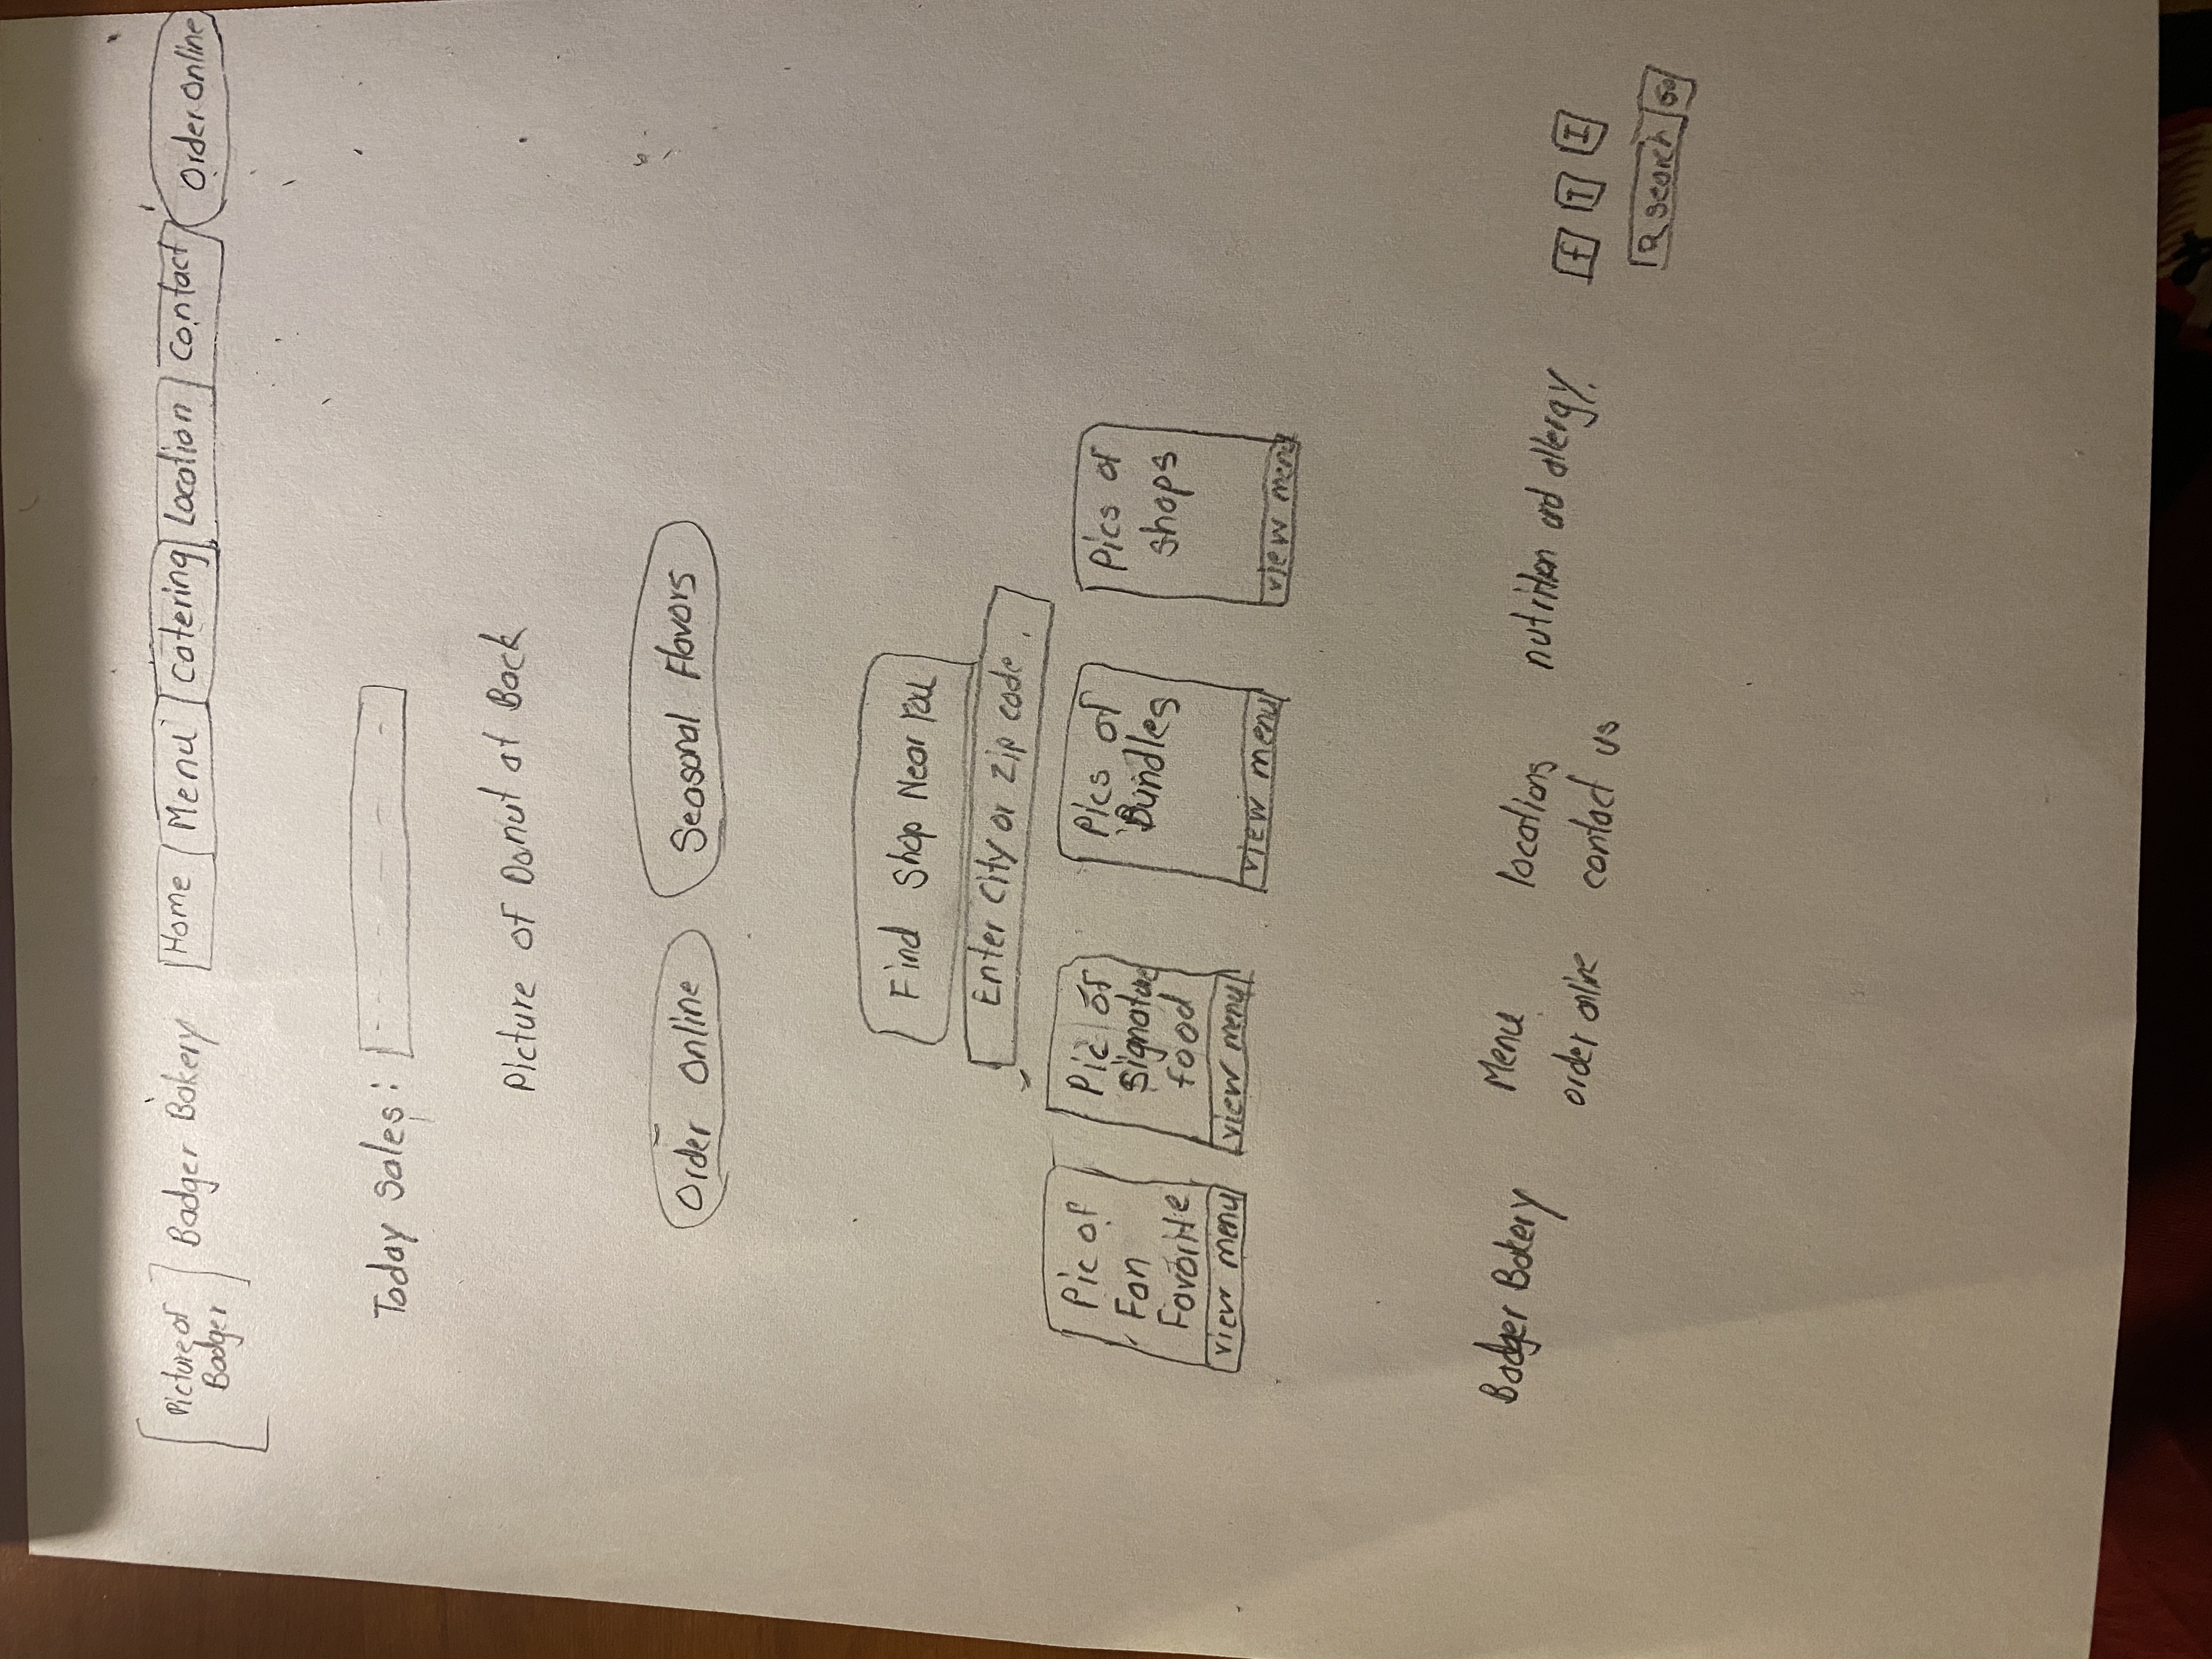 Picture of
Badger
Badger Bakery
Home
Menu
Catering
Location
Contact
Order Online
Today Sales:
Picture of Donut at Back
Order Online
Seasonal Flavors
Find Shop Near You
Enter City or Zip code.
Pic of
Fan
Favorite
view menu
Pic of
Signature
food
view menu
Pics of
Bundles
view menu
Pics of
shops
view menu
Badger Bakery
Menu
order online
locations
contact us
nutrition and allergy.
f T I
search Go